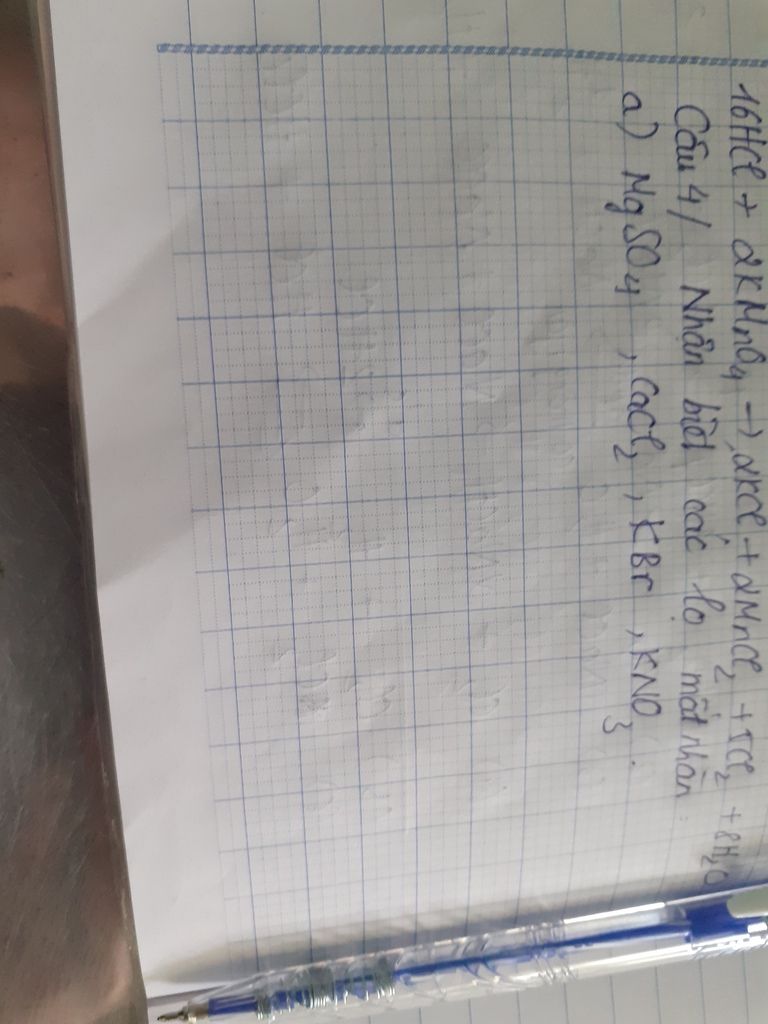 16HCl + 2KMnO4 → 2KCl + 2MnCl2 + 5Cl2 + 8H2O
Câu 4/ Nhận biết các lọ mất nhãn:
a) MgSO4, CaCl2, KBr, KNO3.